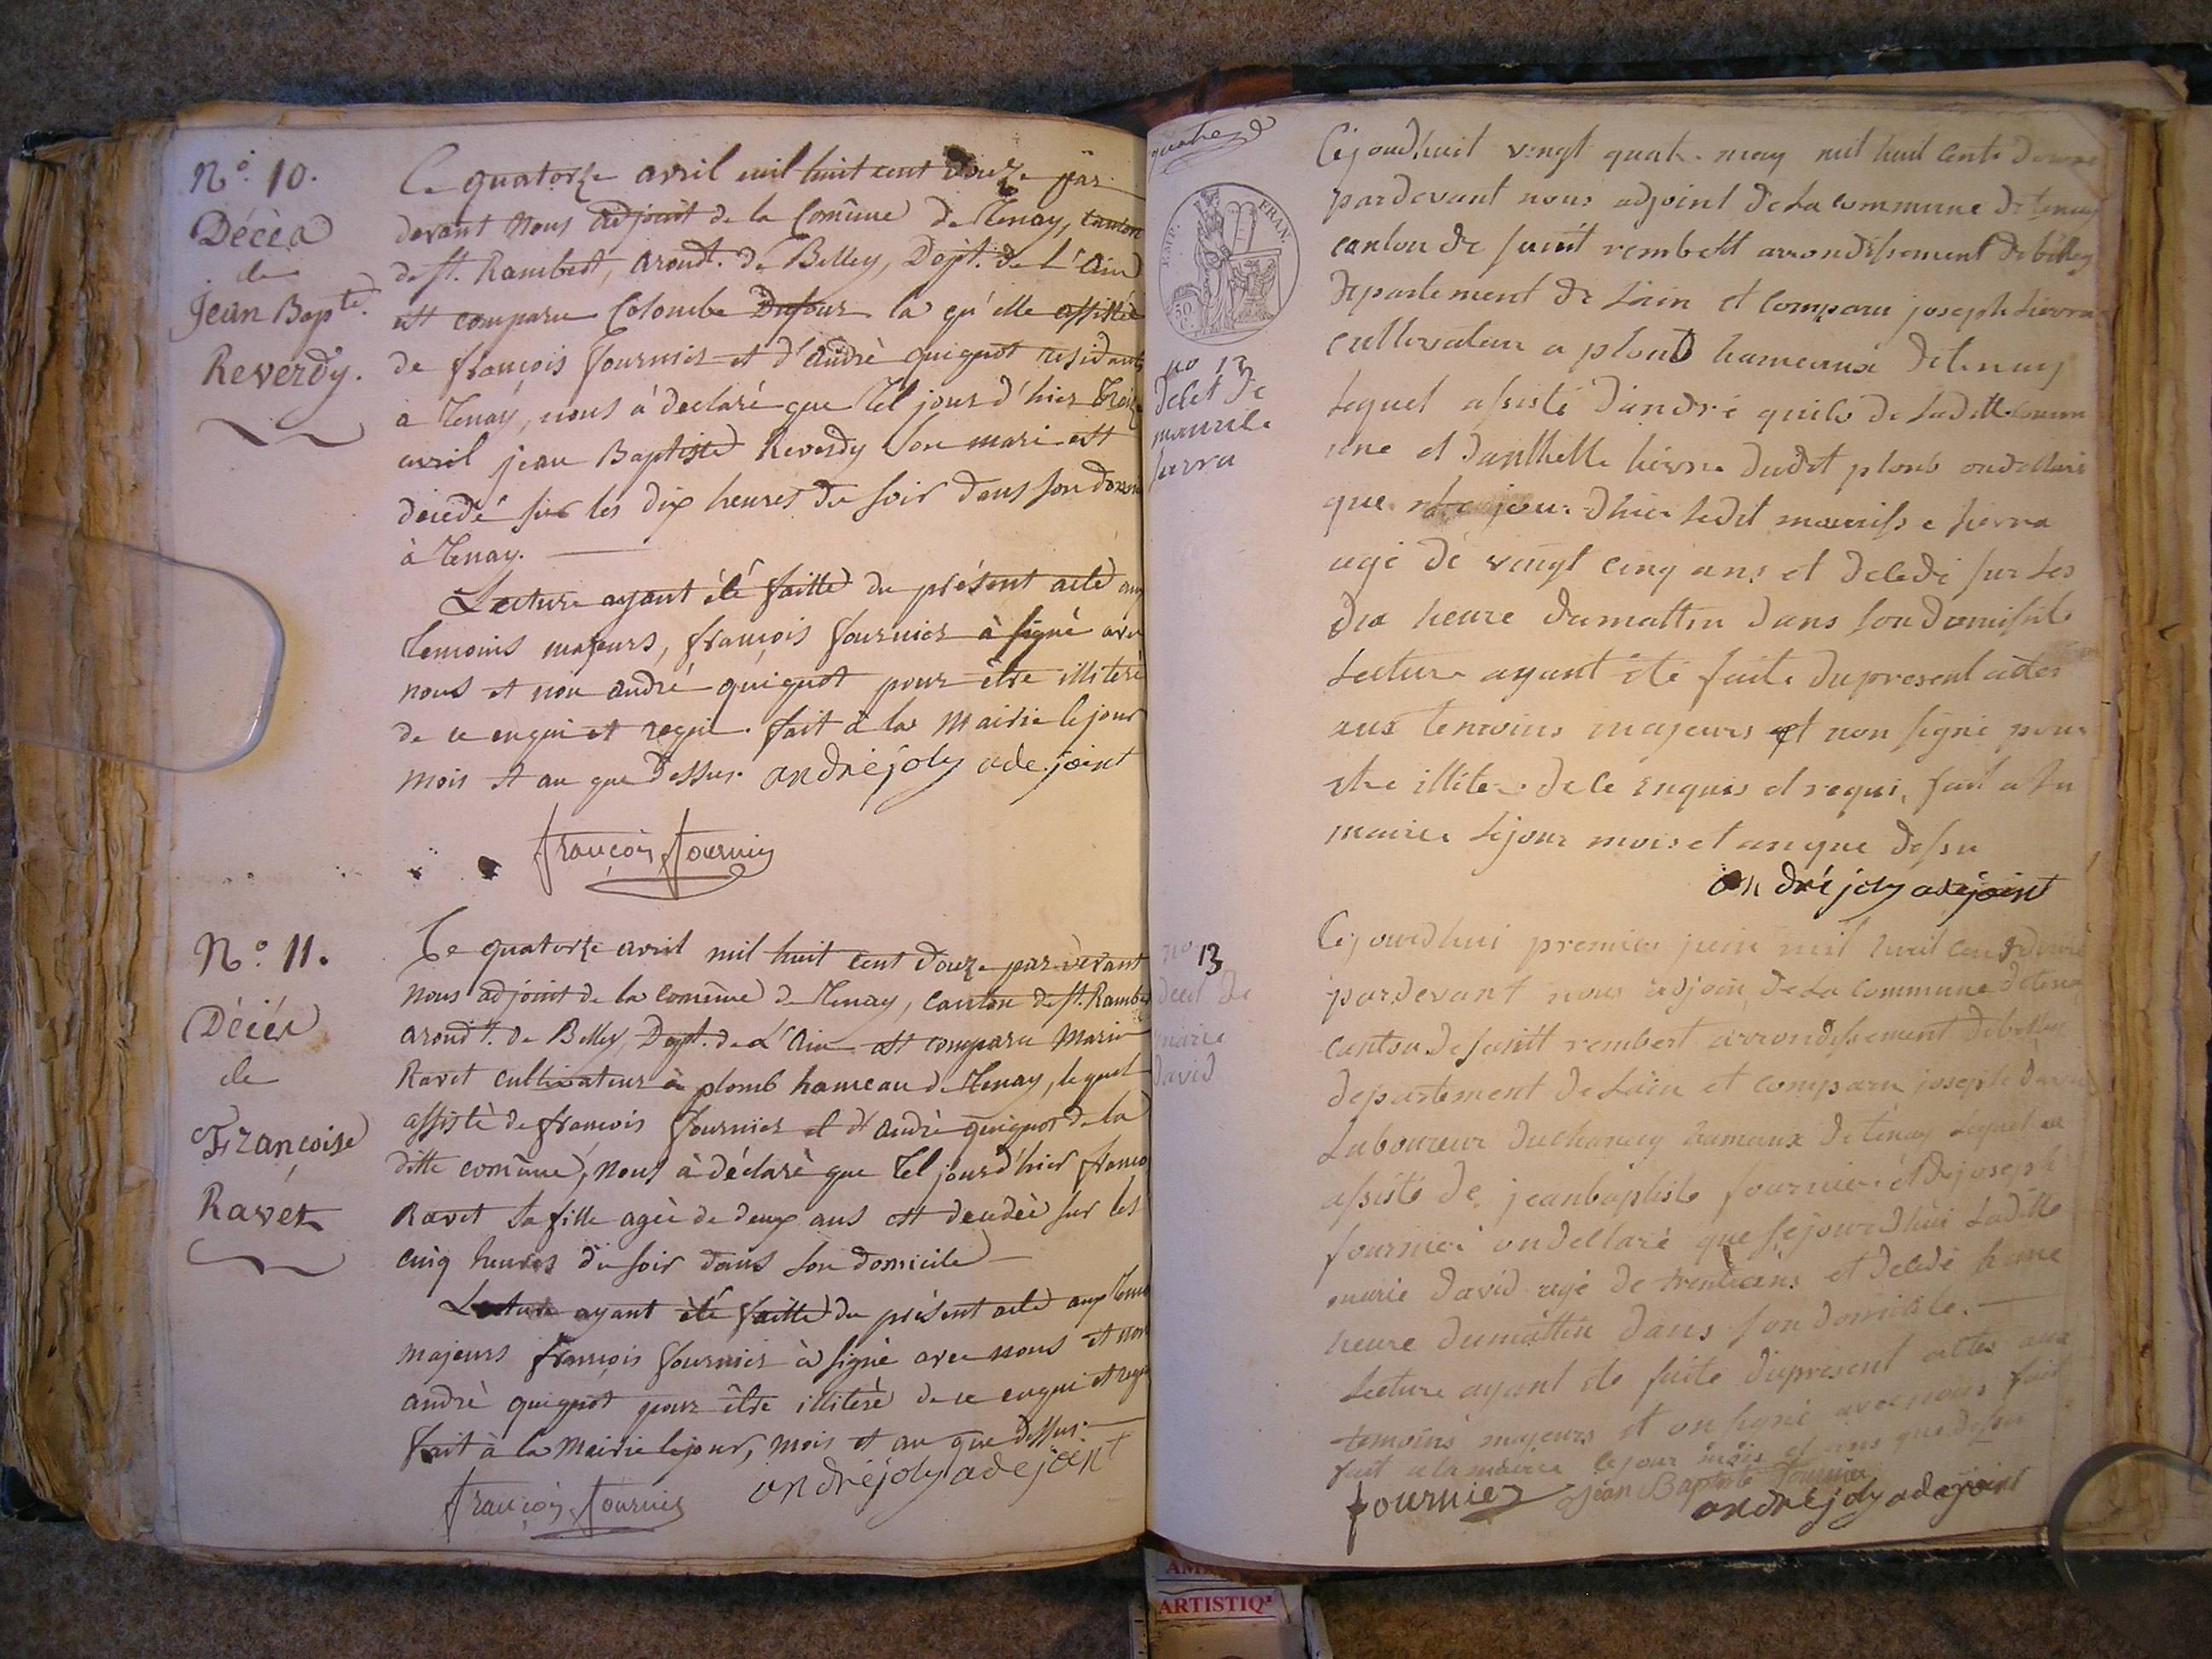 N.º 10.
Décès
de
Jean Bapte.
Reverdy.
Le quatorze avril mil huit cent douze par
devant Nous adjoint de la Comūne de Tenay, canton
de St. Rambert, arondt. de Belley, Dept. de L'Ain
est comparu Colombe Dufour la qu'elle assistée
de françois fournier et d'andrè guignot residants
a Tenay, nous à declaré que Tel jour d'hier treize
avril jean Baptiste Reverdy son mari est
décédé sur les dix heures du soir dans son
à Tenay.
Lecture ayant été faitte du présent acte aux
temoins majeurs, françois fournier à signè avec
nous et non andré guignot pour être illiterè
de ce enqui et requi. fait à la Mairie le jour
mois et an que dessus. andréjoly ade.joint
françois fournier
N.º 11.
Décès
de
Françoise
Ravet
Le quatorze avril mil huit cent douze par dèvant
Nous adjoint de la comūne de Tenay, canton de St. Rambert
arondt. de Belley Dept. de L'Ain est comparu Marin
Ravet cultivateur à plomb hameau de Tenay, lequel
assistè de françois fournier et d'andrè guignot de la
ditte comūne, nous à déclarè que Tel jour d'hier
Ravet sa fille agèe de deux ans est decedèe sur les
cinq heures du soir dans son domicile
Lecture ayant été faitte du présent acte aux
majeurs françois fournier à signè avec nous et non
andrè guignot pour être illiterè de ce enqui et requi
fait à la Mairie le jour, mois et an que dessus.
françois fournier andréjoly adejoint
quatre
EMP. FRAN.
50 C.
no 12
decet de
maurile
Cejoudhuit vingt quatre may mil huit cents douze
pardevant nous adjoint de La commune de tenay
canton de saint rembert arrondissement de belley
departement de Lain et comparu joseph
cultivateur a plomb hameaux de tenay
Lequel assisté dandré de Laditte
une et danthelle dudit plomb on dellaré
que jour dhier Ledit
agé de vingt cinq ans et decedé sur Les
dix heure dumattin dans son domisile
Lecture ayant été faite dupresent actes
aux temoins majeurs et non signé pour
etre illitere de ce enquis et requi, fait a La
mairie Lejour mois et an que dessu
andréjoly adejoint
no 13
decet de
marie
david
Cejourdhui premier juin mil huit cent douze
pardevant nous adjoin de La commune de tenay
canton de saint rembert arrondissement de belley
departement de Lain et comparu joseph david
Laboureur duchanay hameaux de tenay Lequel a
assisté de jeanbaptiste fournier et de joseph
fournier ondellaré que sejourdhui Laditte
marie david agé de trente ans et decedé
heure dumattin dans son domicile.
Lecture ayant été faite dupresent actes aux
temoins majeurs et on signé avec nous fait
fait a lamairie le jour mois et ans que dessu
fournier jean Baptiste fournier
andréjoly adejoint
ARTISTIQ